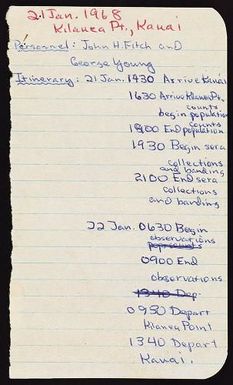 21 Jan. 1968
Kilauea Pt., Kauai
Personnel: John H. Fitch and
George Young
Itinerary: 21 Jan. 1430 Arrive Kauai
1630 Arrive Kilauea Pt.
begin population counts
1800 End population counts
1930 Begin sera
collections
and banding
2100 End sera
collections
and banding
22 Jan. 0630 Begin
observations
0900 End
observations
1340 Dep.
0930 Depart
Kilauea Point
1340 Depart
Kauai.